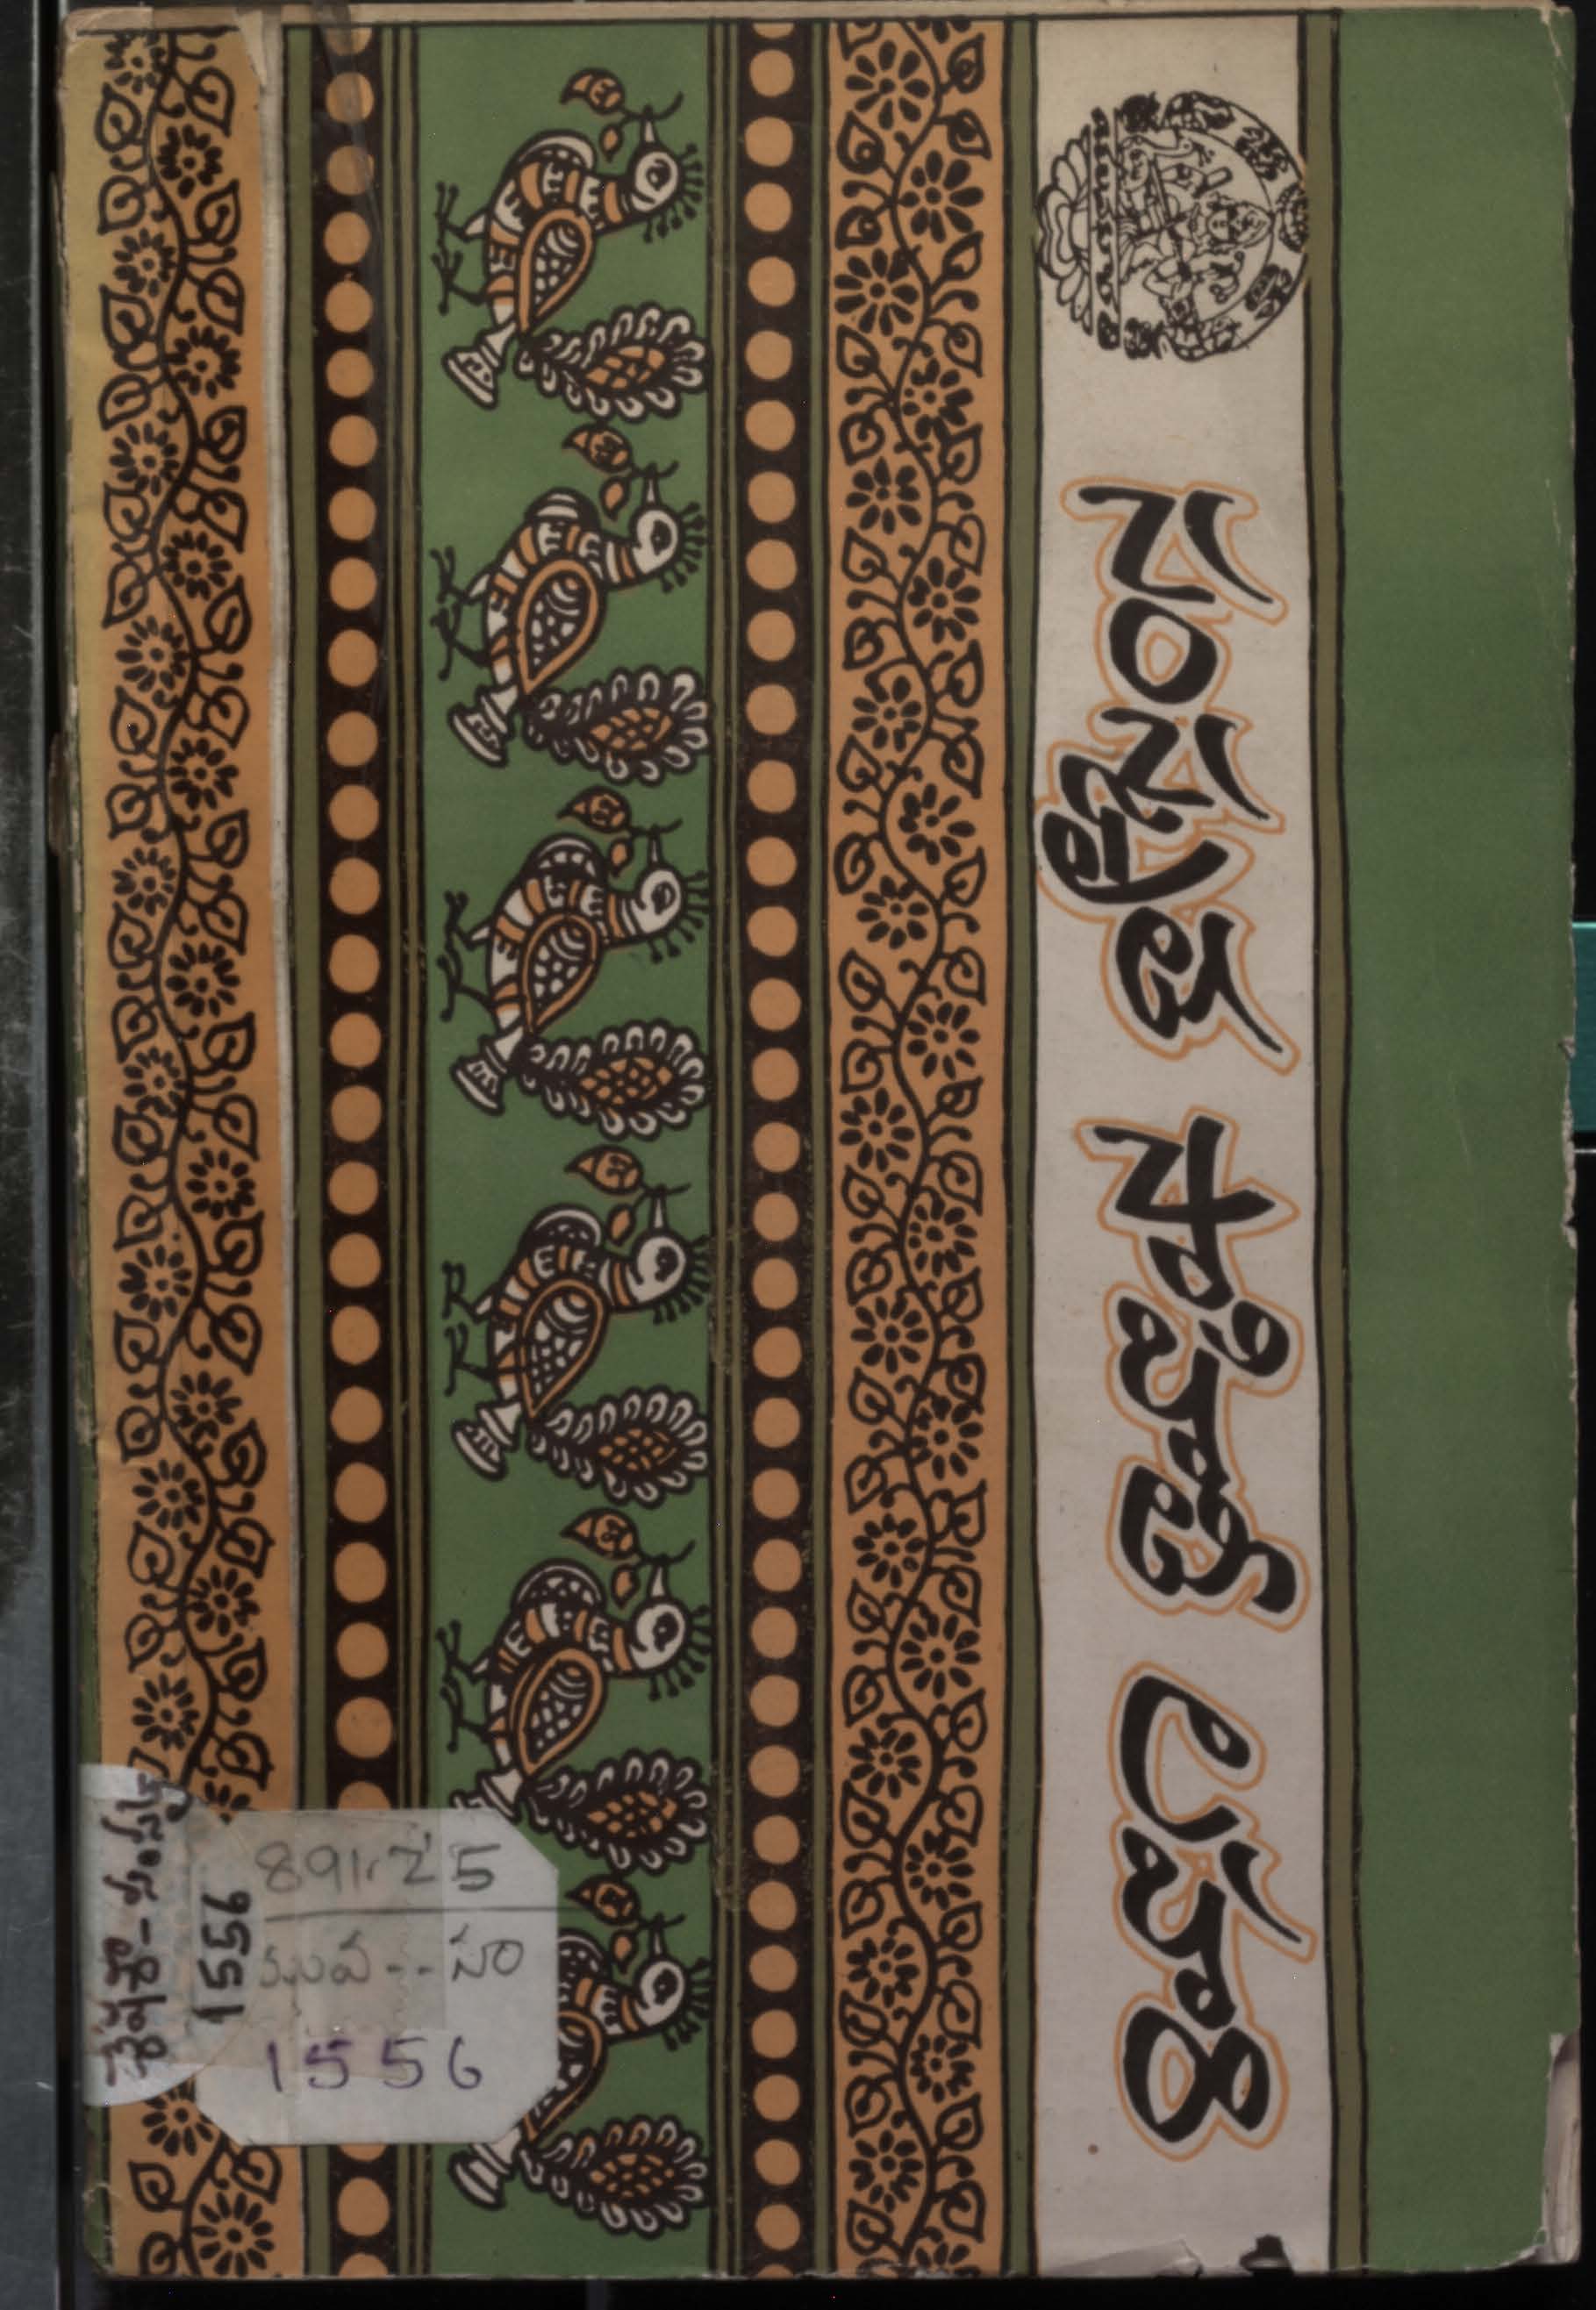 సంస్కృత సాహిత్య లహరి
1556
891.25
సం
1556